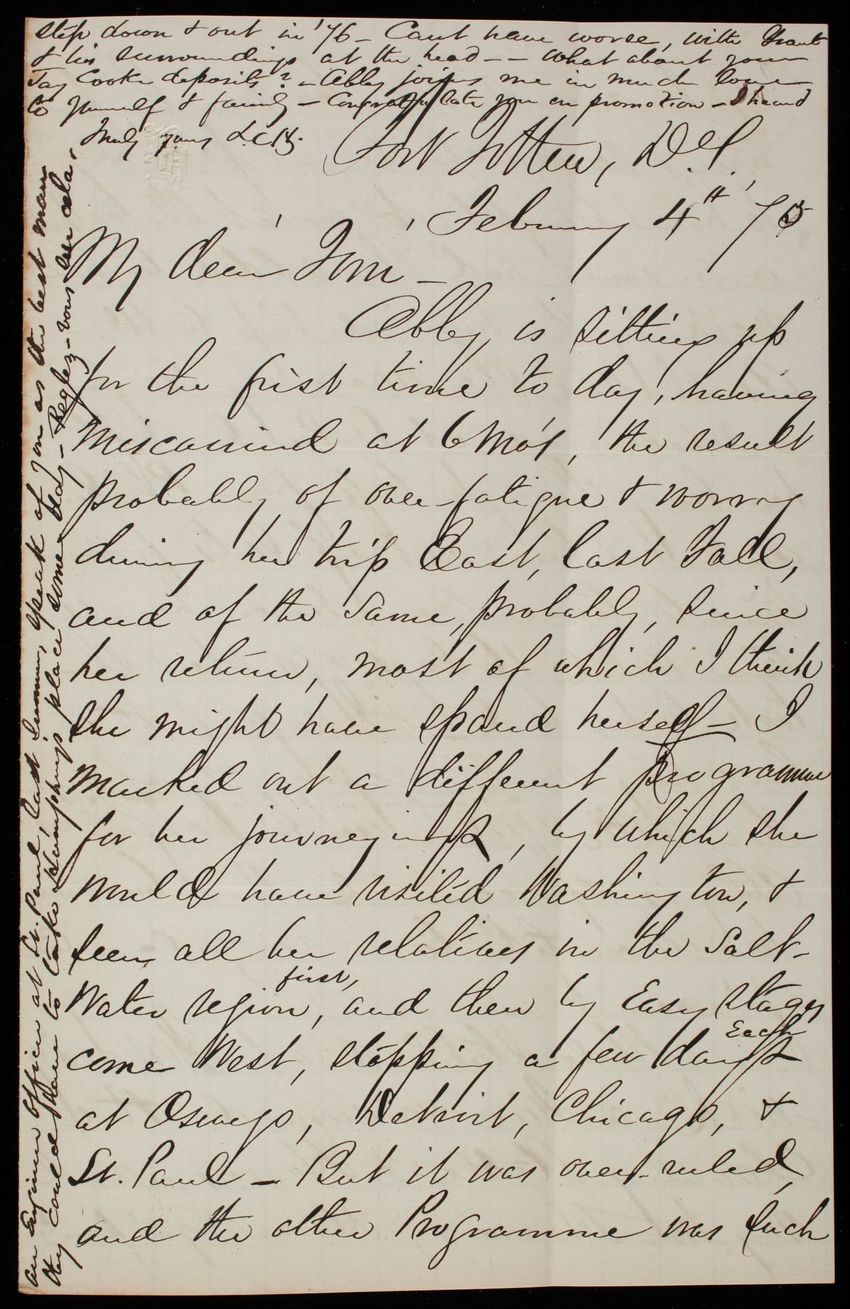 step down & out in '76 – Cant have worse, with Grant
& his surroundings at the head – – What about your
Jay Cooke deposits? – Abby joins me in much love
to yourself & family – Congratulate you on promotion – I heard
Truly yours L.C.H.
an Engineer Officer at St. Paul, last Summer, speak of you as the best man
they could have to take Humphreys' place some day – Reglez-vous sur cela.
Fort Totten, D.T.
February 4th '75
My dear Tom –
Abby is sitting up
for the first time to day, having
miscarried at 6 mos, the result
probably of over-fatigue & worry
during her trip East, last Fall,
and of the same, probably, since
her return, most of which I think
she might have spared herself – I
marked out a different programme
for her journeyings, by which she
would have visited Washington, &
seen all her relatives in the Salt-
Water region first, and then by Easy stages
come West, stopping a few days Each
at Oswego, Detroit, Chicago, &
St. Paul – But it was over-ruled,
and the other Programme was such